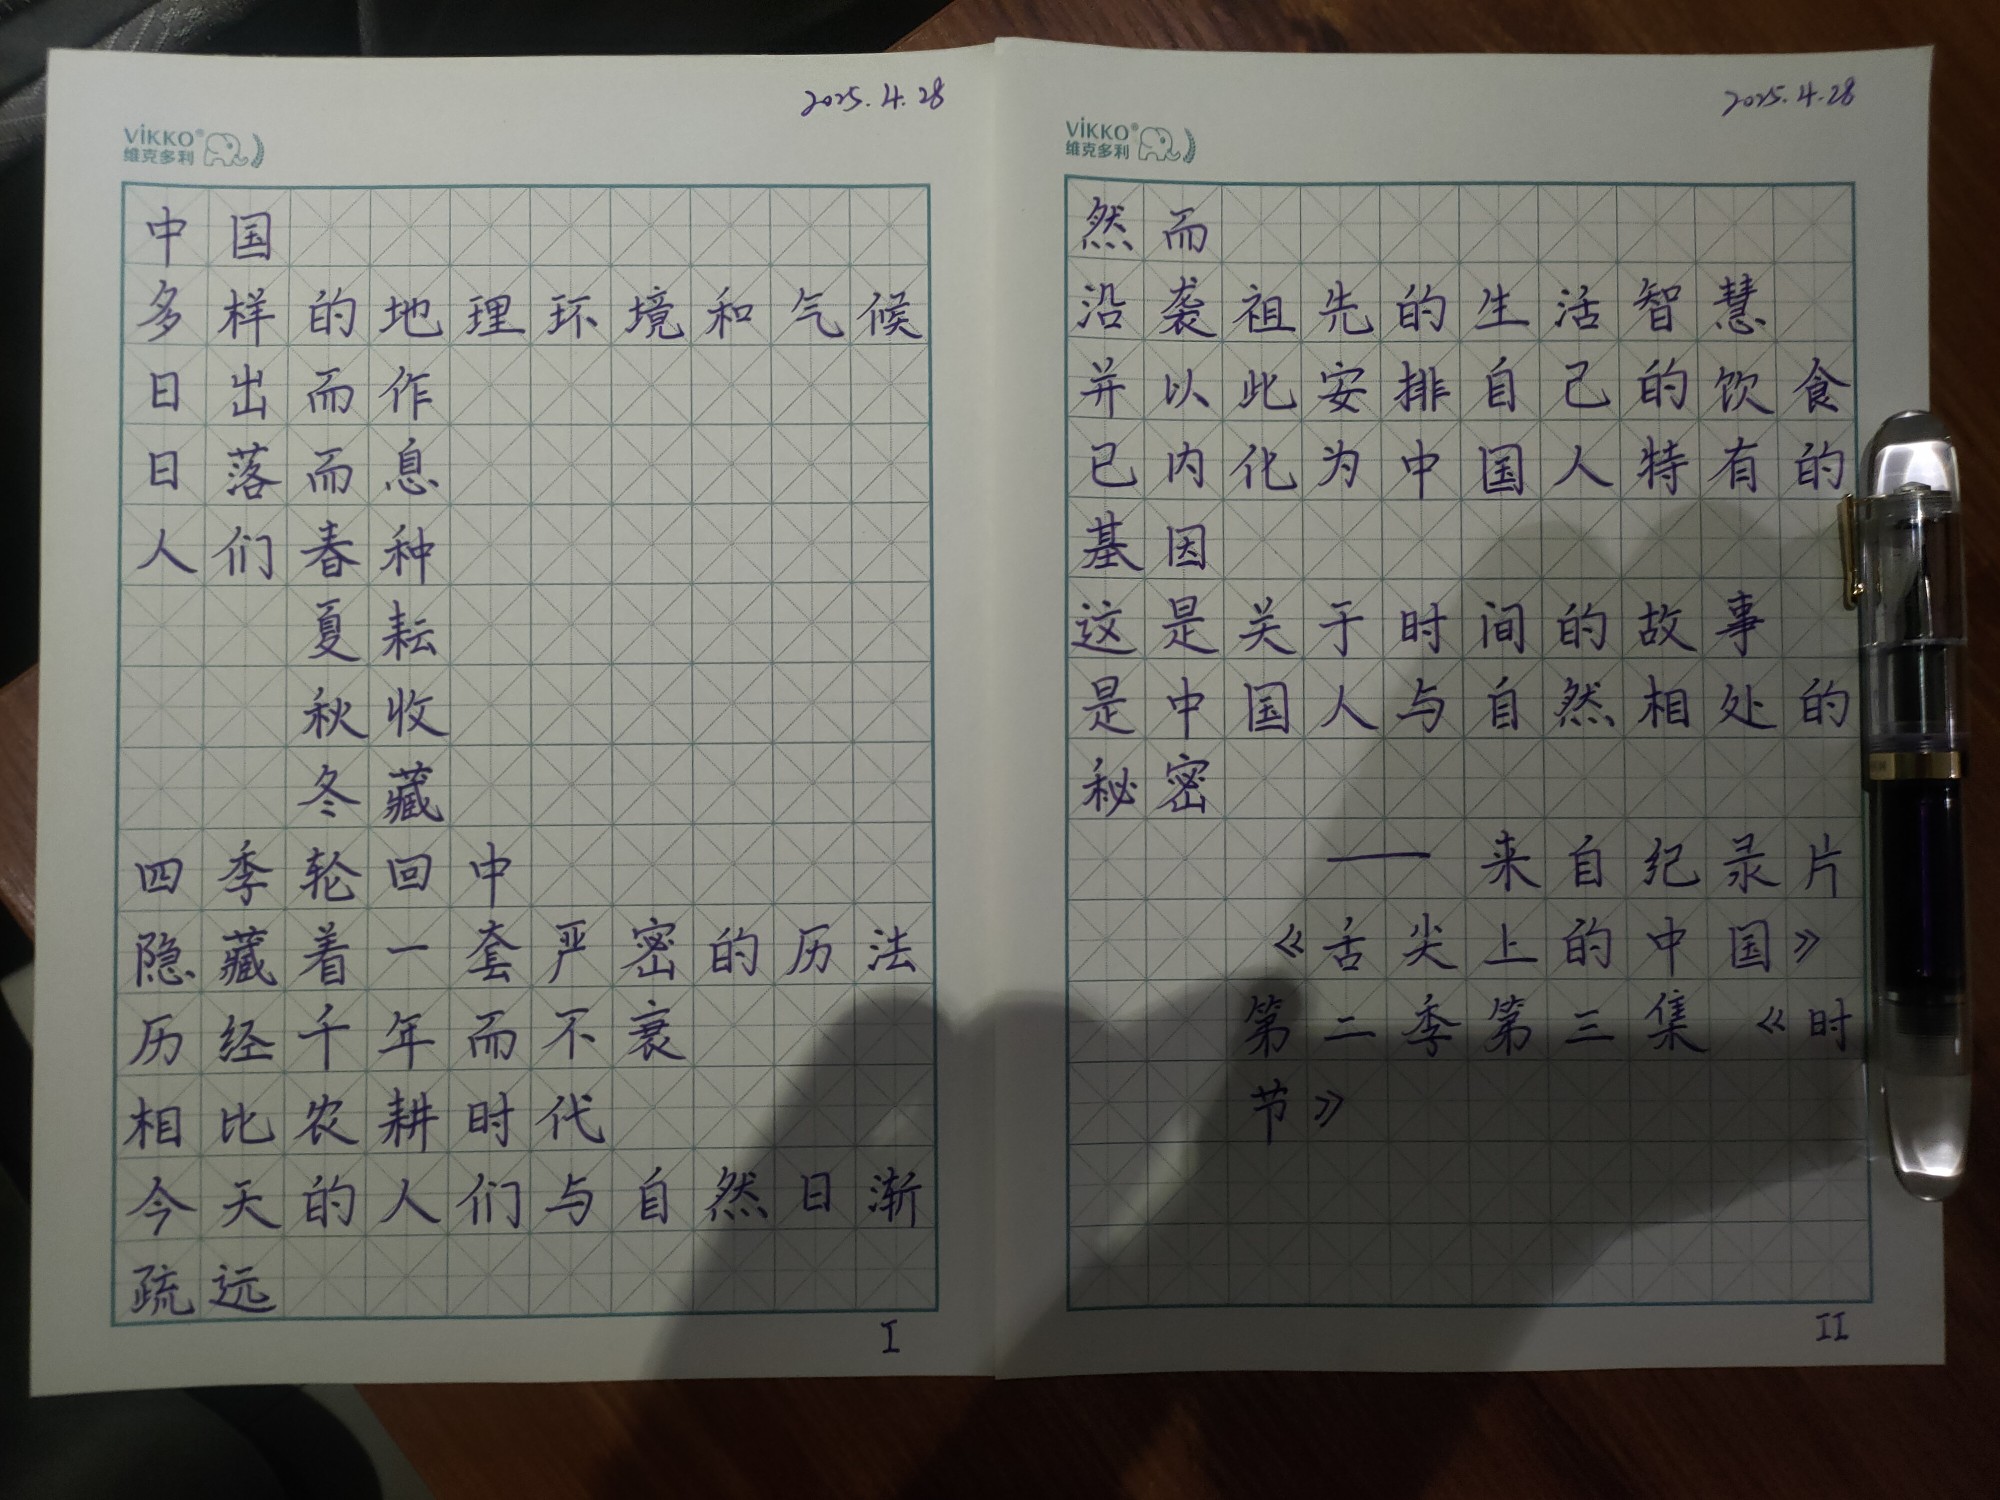 2025.4.28
VİKKO®
维克多利
中国
多样的地理环境和气候
日出而作
日落而息
人们春种
夏耘
秋收
冬藏
四季轮回中
隐藏着一套严密的历法
历经千年而不衰
相比农耕时代
今天的人们与自然日渐
疏远
I
2025.4.28
VİKKO®
维克多利
然而
沿袭祖先的生活智慧
并以此安排自己的饮食
已内化为中国人特有的
基因
这是关于时间的故事
是中国人与自然相处的
秘密
——来自纪录片
《舌尖上的中国》
第二季第三集《时
节》
II